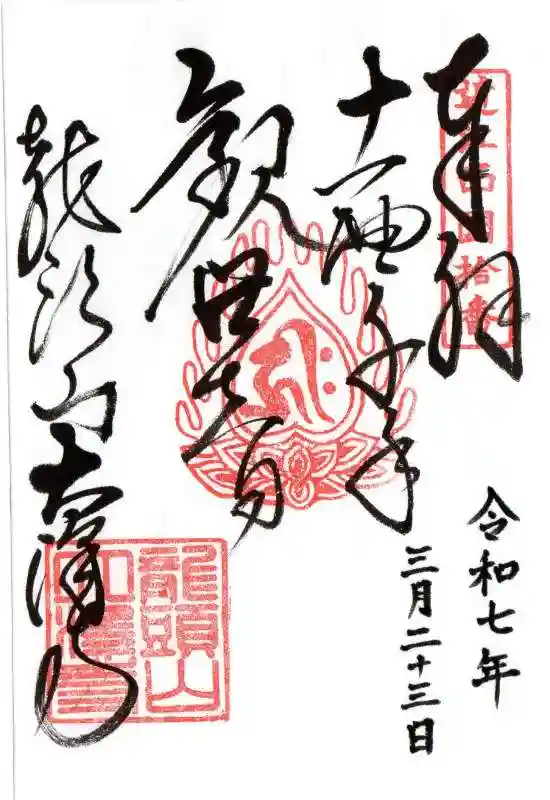 奉拝
四国拾番
十一面千手
観世音
龍頭山 大澤寺
令和七年
三月二十三日
龍頭山